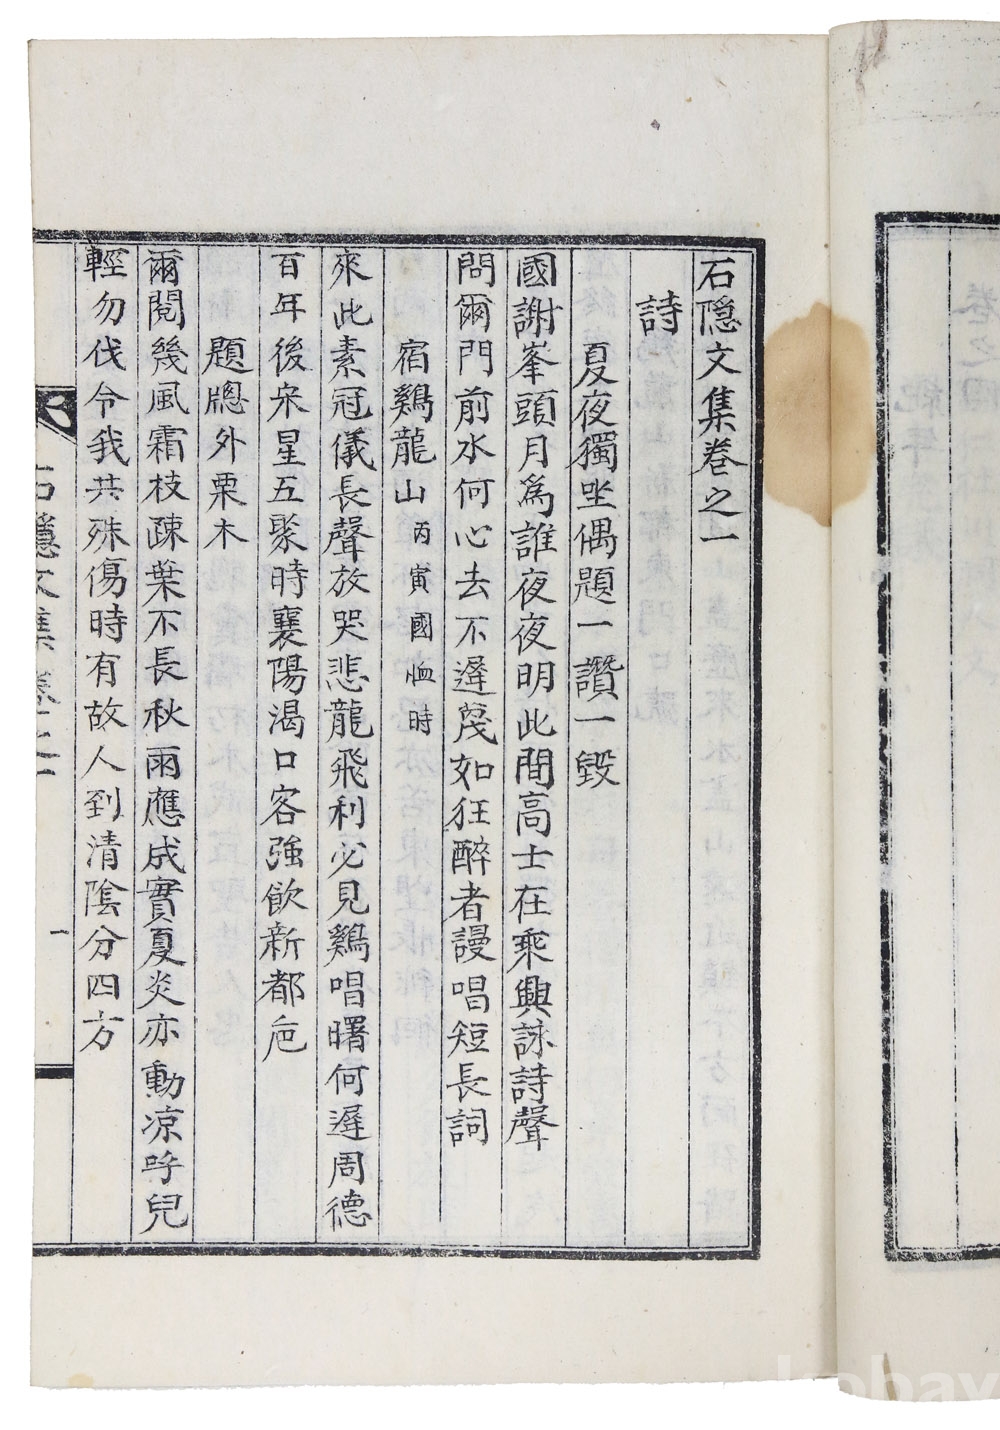 石隱文集卷之一
詩
夏夜獨坐偶題一讚一毀
國謝峯頭月為誰夜夜明此間高士在乘興詠詩聲
問爾門前水何心去不遲 如狂醉者謾唱短長詞
宿鷄龍山 丙寅國恤時
來此素冠儀長聲放哭悲龍飛利必見鷄唱曙何遲周德
百年後宋星五聚時襄陽渴口客強飲新都卮
題牕外栗木
爾閱幾風霜枝疎葉不長秋雨應成實夏炎亦動凉呼兒
輕勿伐令我共殊傷時有故人到清陰分四方
石隱文集卷之一
一
kobay